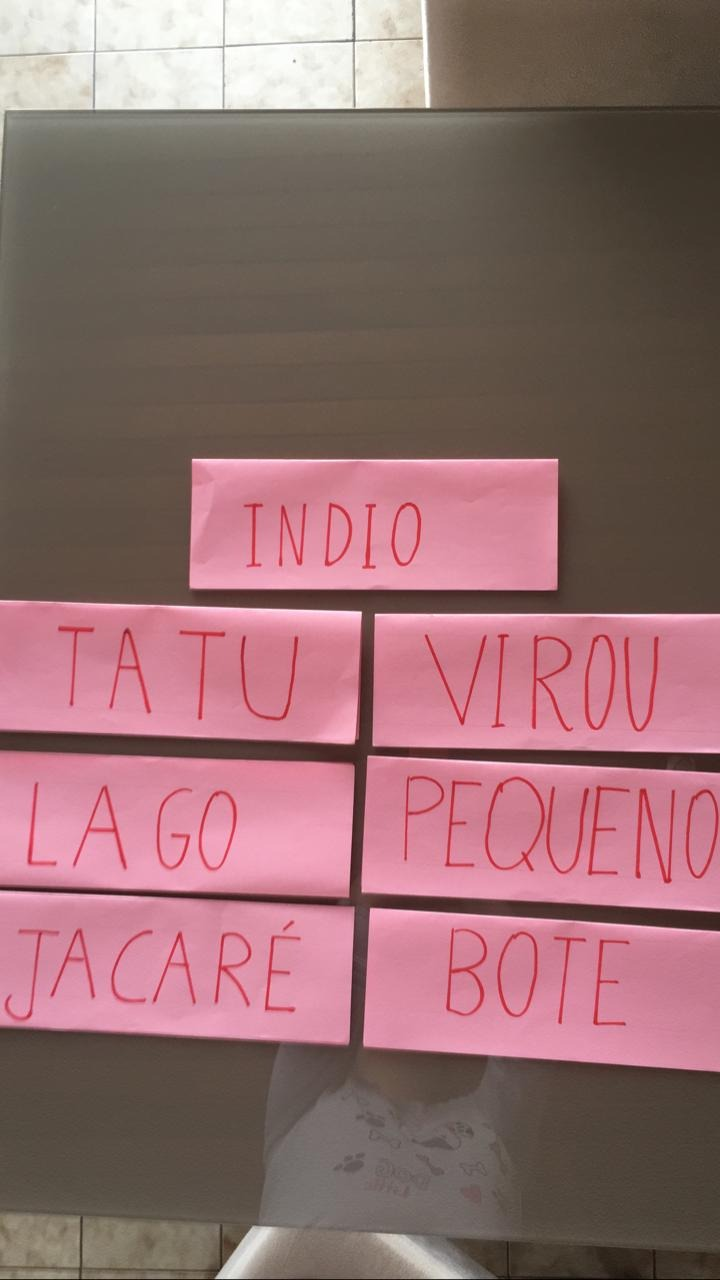 INDIO
TATU
VIROU
LAGO
PEQUENO
JACARÉ
BOTE